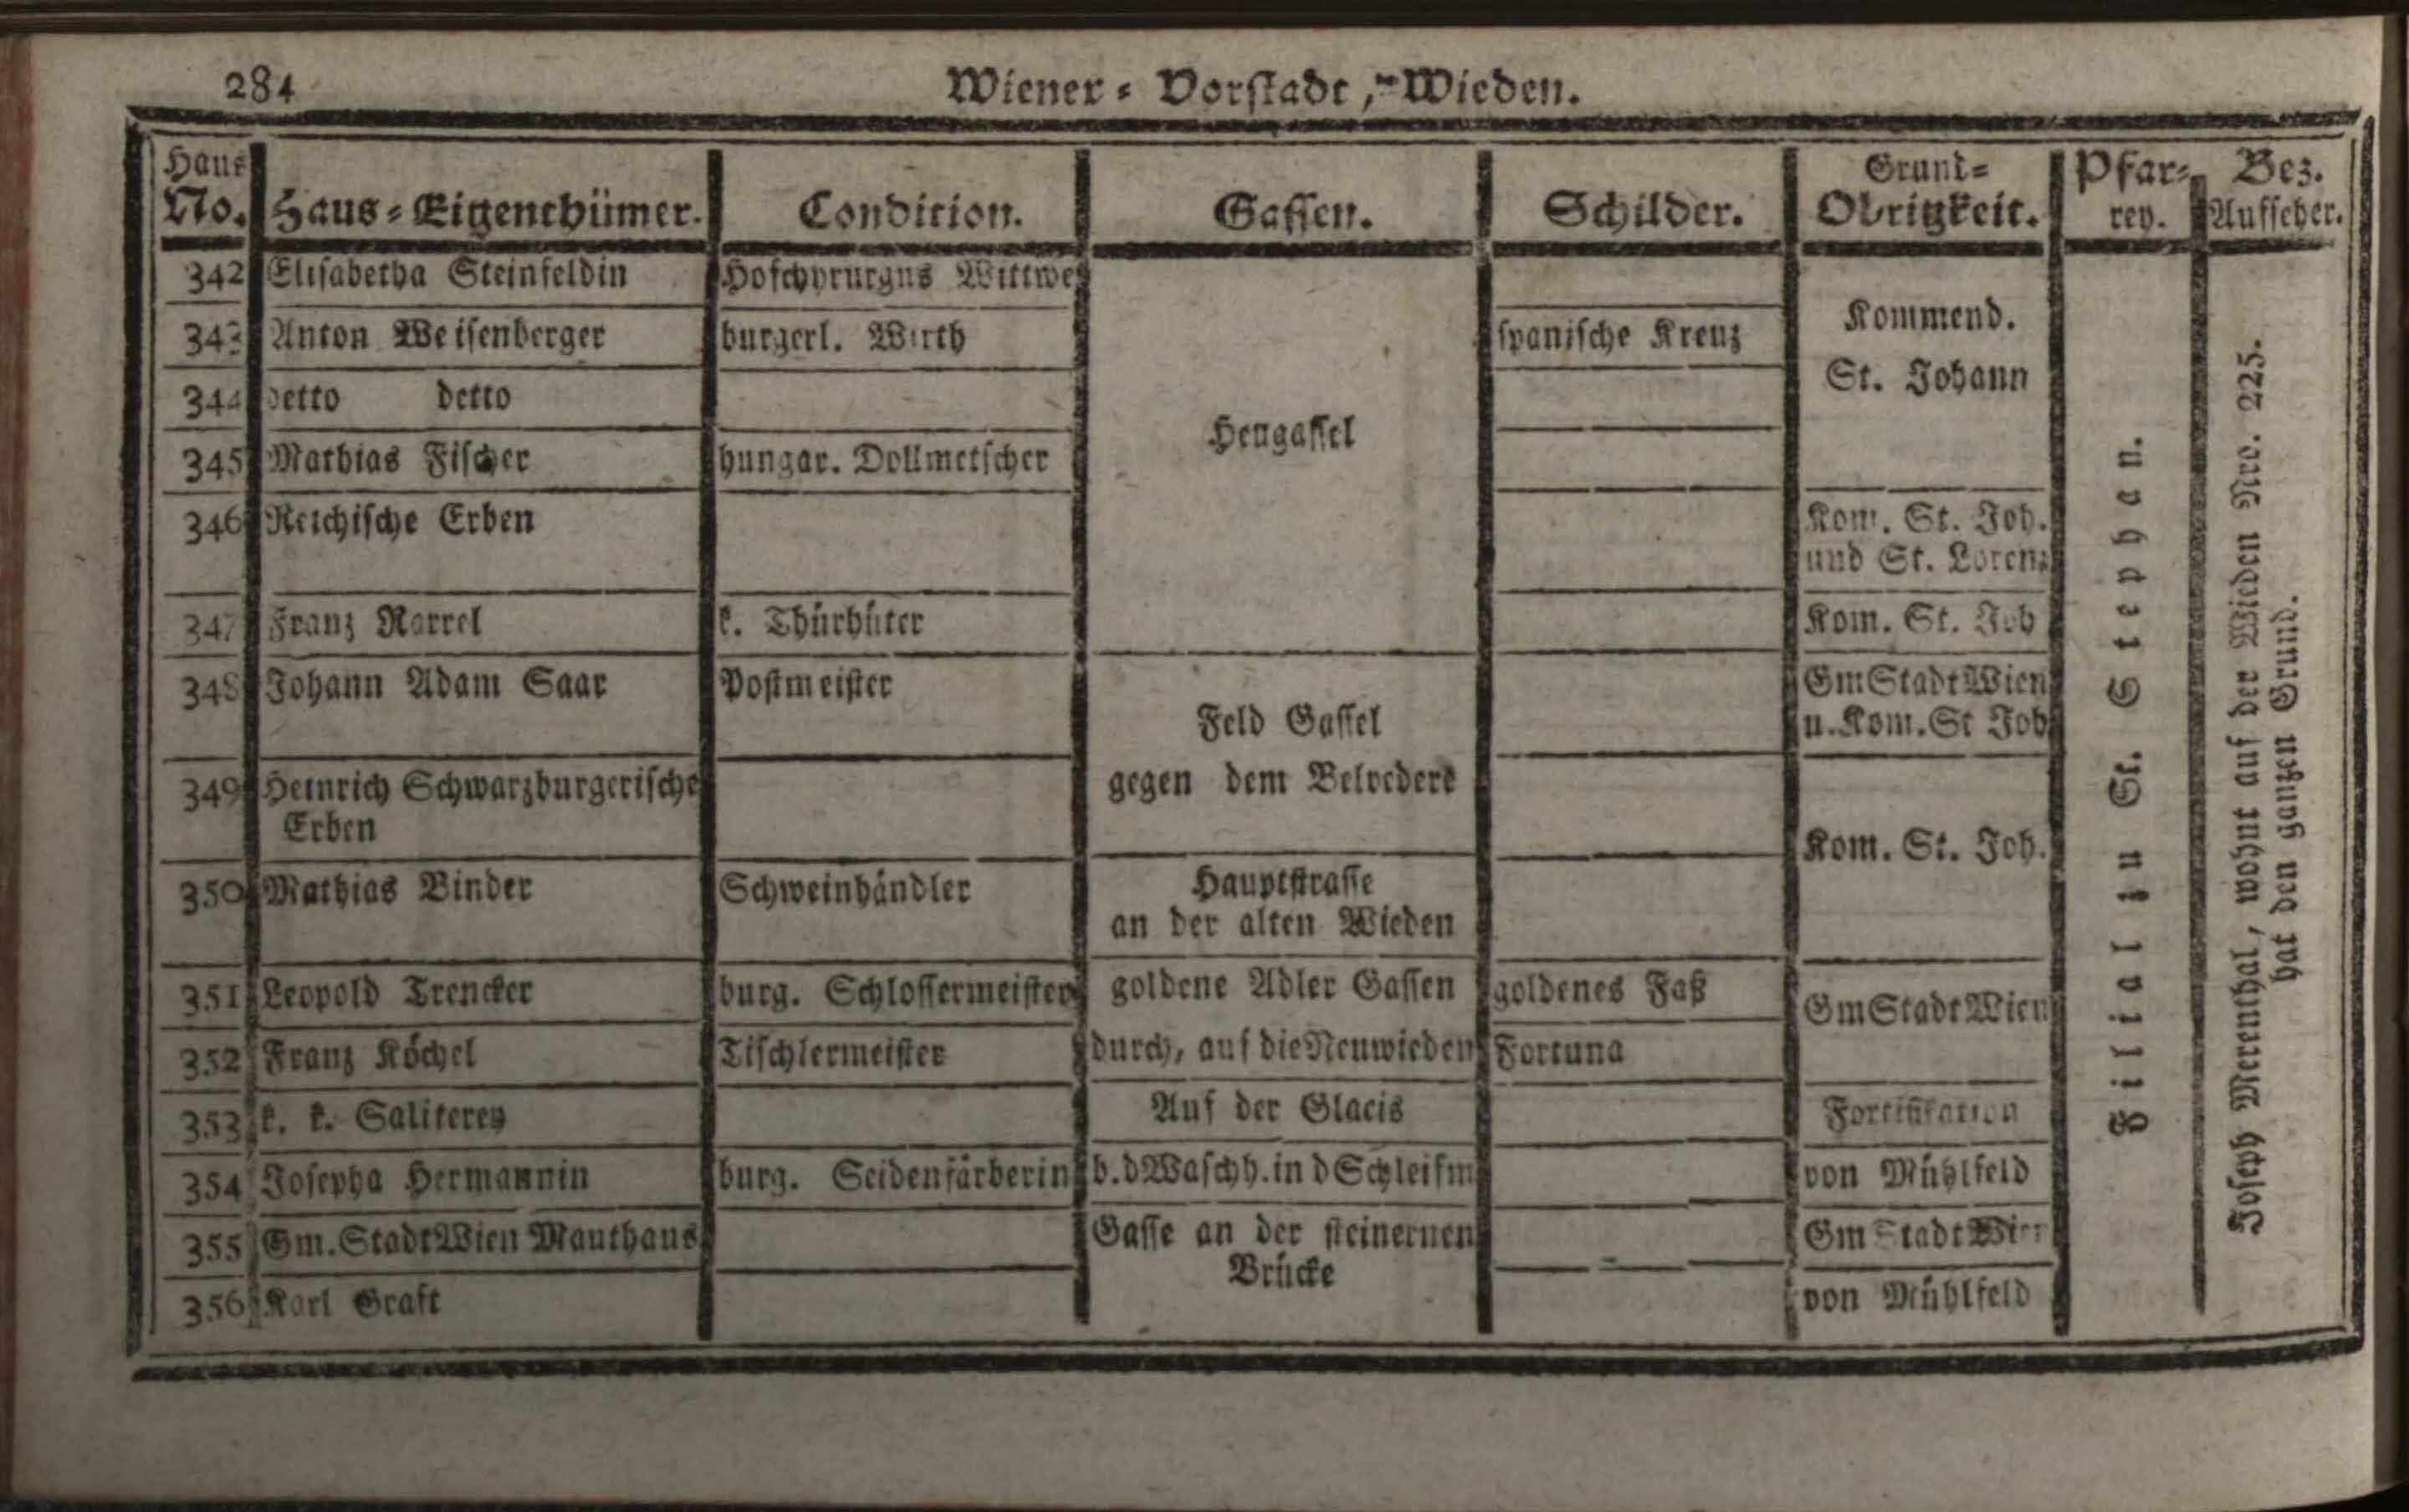 284
Wiener = Vorstadt, = Wieden.
Haus No. Haus = Eigenthümer. Condition. Gassen. Schilder. Grund= Obrigkeit. Pfar= rey. Bez. Aufseher.
342 Elisabetha Steinfeldin Hofchyrurgus Wittwe
343 Anton Weisenberger burgerl. Wirth spanische Kreuz
Kommend.
St. Johann
344 detto detto
Heugassel
345 Mathias Fischer hungar. Dollmetscher
346 Reichische Erben Kom. St. Joh.
und St. Lorenz
347 Franz Karrel k. Thürhüter Kom. St. Joh
348 Johann Adam Saar Postmeister Gm Stadt Wien
Feld Gassel u. Kom. St Joh
349 Heinrich Schwarzburgerische gegen dem Belvedere
Erben Kom. St. Joh.
350 Mathias Binder Schweinhändler Hauptstrasse
an der alten Wieden
351 Leopold Trencker burg. Schlossermeister goldene Adler Gassen goldenes Faß Gm Stadt Wien
352 Franz Köchel Tischlermeister durch, auf die Neuwieden Fortuna
353 k. k. Saliterey Auf der Glacis Fortifikation
354 Josepha Hermannin burg. Seidenfärberin b. d Waschh. in d Schleifm von Mühlfeld
355 Gm. Stadt Wien Mauthaus Gasse an der steinernen Gm Stadt Wien
Brücke
356 Karl Graft von Mühlfeld
Filial zu St. Stephan.
Joseph Merenthal, wohnt auf der Wieden Nro. 225.
hat den ganzen Grund.